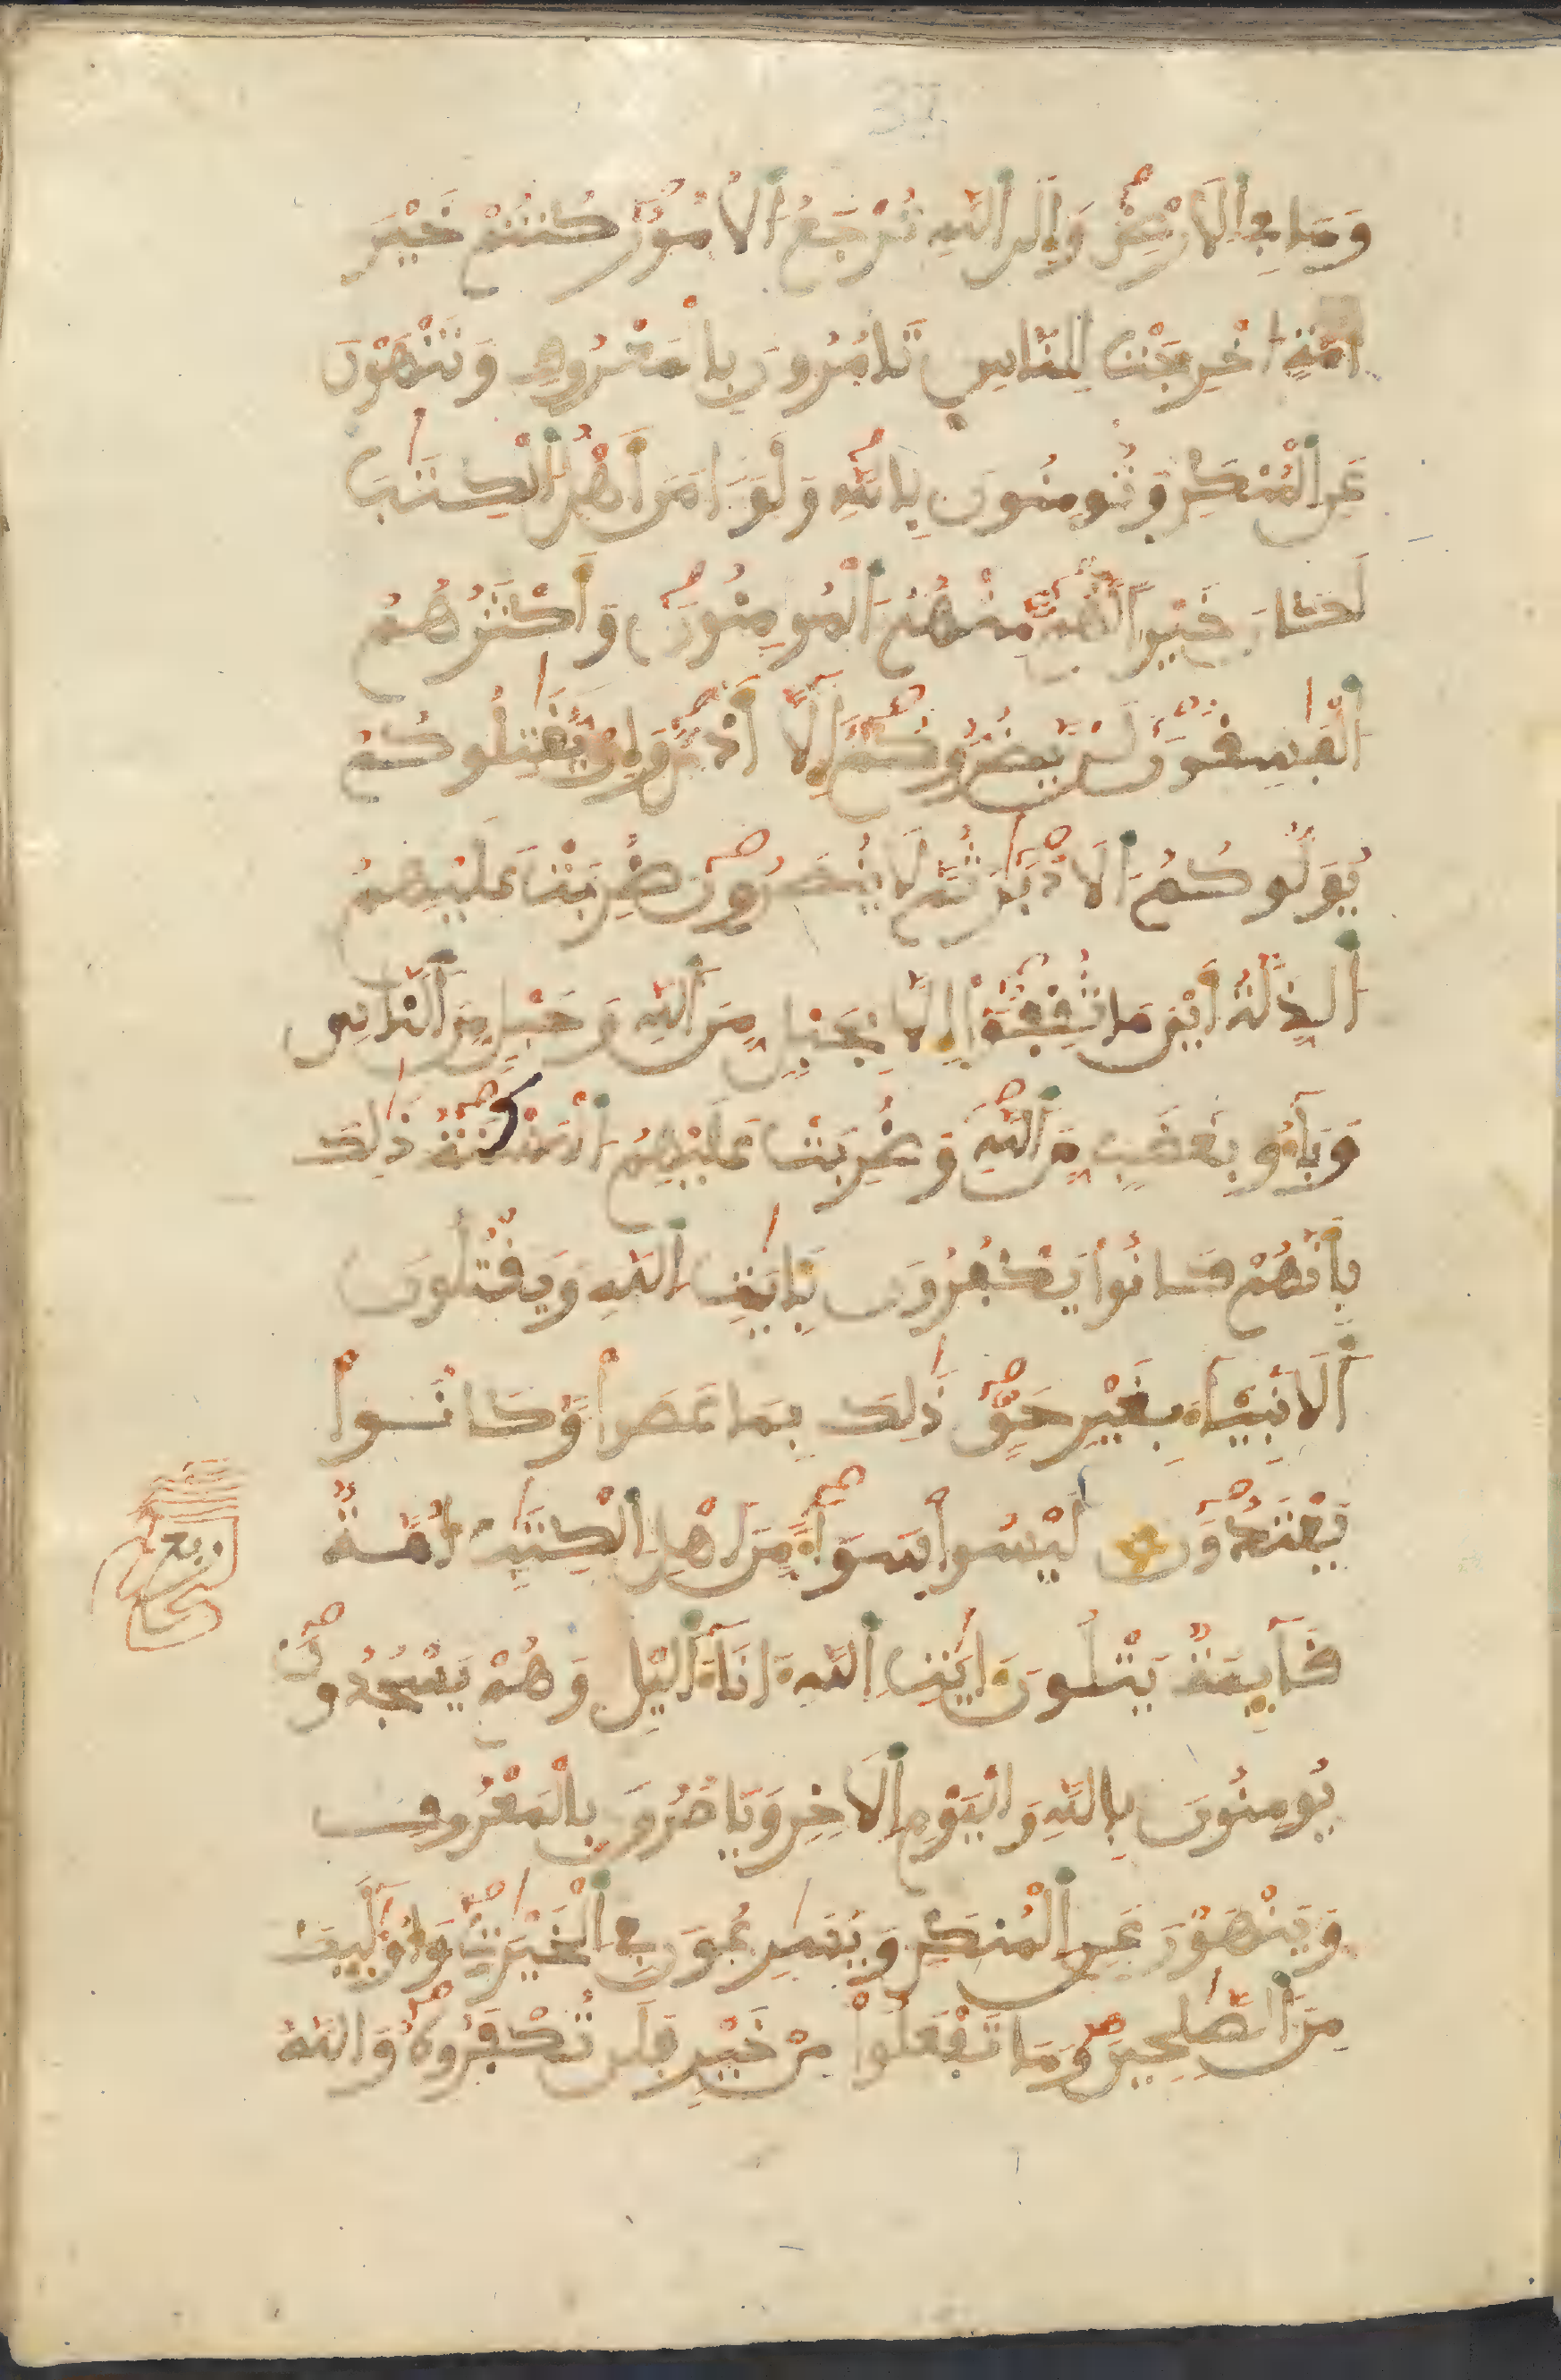 37
وَمَا فِے اِ۬لَارْضِ وَإِلَي اَ۬للَّهِ تُرْجَعُ اُ۬لُامُورُ كُنتُمْ خَيْرَ
أُمَّةٍ اخْرِجَتْ لِلنَّاسِ تَامُرُونَ بِالْمَعْرُوفِ وَتَنْهَوْنَ
عَنِ اِ۬لْمُنكَرِ وَتُومِنُونَ بِاللَّهِ وَلَوَ اٰمَنَ أَهْلُ اُ۬لْكِتَٰبِ
لَكَانَ خَيْراً لَّهُم مِّنْهُمُ اُ۬لْمُومِنُونَ وَأَكْثَرُهُمُ
اُ۬لْفَٰسِقُونَ لَنْ يَّضُرُّوكُمْ إِلَّآ أَذىً وَإِنْ يُّقَٰتِلُوكُمْ
يُوَلُّوكُمُ اُ۬لَادْبَٰرَ ثُمَّ لَا يُنصَرُونَ ضُرِبَتْ عَلَيْهِمُ
اُ۬لذِّلَّةُ أَيْنَ مَا ثُقِفُوٓاْ إِلَّا بِحَبْلٍ مِّنَ اَ۬للَّهِ وَحَبْلٍ مِّنَ اَ۬لنَّاسِ
وَبَآءُو بِغَضَبٍ مِّنَ اَ۬للَّهِ وَضُرِبَتْ عَلَيْهِمُ اُ۬لْمَسْكَنَةُ ذَٰلِكَ
بِأَنَّهُمْ كَانُواْ يَكْفُرُونَ بِـَٔايَٰتِ اِ۬للَّهِ وَيَقْتُلُونَ
اَ۬لَانۢبِيَآءَ بِغَيْرِ حَقٍّ ذَٰلِكَ بِمَا عَصَواْ وَّكَانُواْ
يَعْتَدُونَ لَيْسُواْ سَوَآءً مِّنَ اَهْلِ اِ۬لْكِتَٰبِ أُمَّةٌ
قَآئِمَةٌ يَتْلُونَ ءَايَٰتِ اِ۬للَّهِ ءَانَآءَ اَ۬ليْلِ وَهُمْ يَسْجُدُونَ
يُومِنُونَ بِاللَّهِ وَالْيَوْمِ اِ۬لَاخِرِ وَيَامُرُونَ بِالْمَعْرُوفِ
وَيَنْهَوْنَ عَنِ اِ۬لْمُنكَرِ وَيُسَٰرِعُونَ فِے اِ۬لْخَيْرَٰتِ وَأُوْلَٰٓئِكَ
مِنَ اَ۬لصَّٰلِحِينَ وَمَا تَفْعَلُواْ مِنْ خَيْرٍ فَلَن تُكْفَرُوهُ وَاللَّهُ